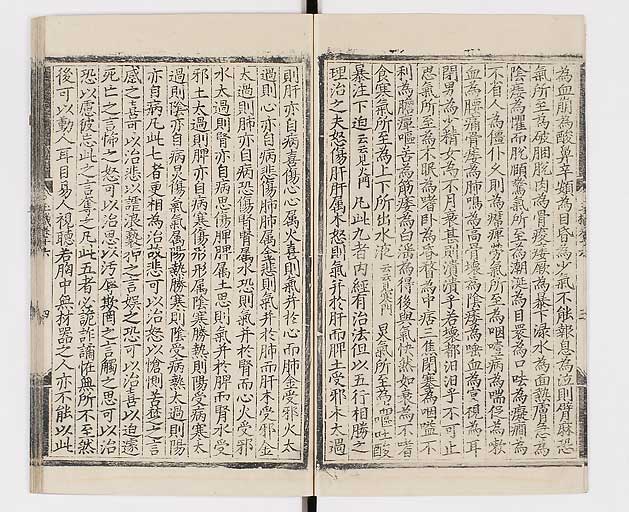 為血崩為酸鼻辛頞為目昏為少氣不能報息為泣則臂麻恐
氣所至為破䐃脫肉為骨痠痿厥為暴下淥水為面熱膚急為
陰痿為懼而脫頤驚氣所至為潮涎為目寰為口呿為癡癇為
不省人為僵仆久則為痺勞氣所至為咽噎病為喘促為嗽
血為腰痛骨痿為肺鳴為高骨壞為陰痿為唾血為冥視為耳
閉男為少精女為不月衰甚則潰潰乎若壞都汩汩乎不可止
思氣所至為不眠為嗜卧為昏瞀為中痞三焦閉塞為咽嗌不
利為膽癉嘔苦為筋痿為白淫為得後與氣快然如衰為不嗜
食寒氣所至為上下所出水液云云見寒門炅氣所至為喘嘔吐酸
暴注下迫云云見火門凡此九者內經有治法但以五行相勝之
理治之夫怒傷肝肝属木怒則氣并於肝而脾土受邪木太過
則肝亦自病喜傷心心属火喜則氣并於心而肺金受邪火太
過則心亦自病悲傷肺肺属金悲則氣并於肺而肝木受邪金
太過則肺亦自病恐傷腎腎属水恐則氣并於腎而心火受邪
水太過則腎亦自病思傷脾脾属土思則氣并於脾而腎水受
邪土太過則脾亦自病寒傷形形属陰寒勝熱則陽受病寒太
過則陰亦自病炅傷氣氣属陽熱勝寒則陰受病熱太過則陽
亦自病凡此七者更相為治故悲可以治怒以愴惻苦楚之言
感之喜可以治悲以謔浪褻狎之言娛之恐可以治喜以迫遽
死亡之言怖之怒可以治思以汚辱欺罔之言觸之思可以治
恐以慮彼志此之言奪之凡此五者必詭詐譎怪無所不至然
後可以動人耳目易人視聽若胸中無材器之人亦不能以此
三
四